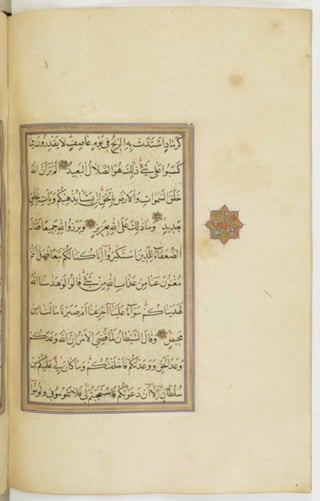 كَرَمَادٍ اشْتَدَّتْ بِهِ الرِّيحُ فِي يَوْمٍ عَاصِفٍ لَا يَقْدِرُونَ مِمَّا
كَسَبُوا عَلَى شَيْءٍ ذَلِكَ هُوَ الضَّلَالُ الْبَعِيدُ أَلَمْ تَرَ أَنَّ اللَّهَ
خَلَقَ السَّمَوَاتِ وَالْأَرْضَ بِالْحَقِّ إِنْ يَشَأْ يُذْهِبْكُمْ وَيَأْتِ بِخَلْقٍ
جَدِيدٍ وَمَا ذَلِكَ عَلَى اللَّهِ بِعَزِيزٍ وَبَرَزُوا لِلَّهِ جَمِيعًا فَقَالَ
الضُّعَفَاءُ لِلَّذِينَ اسْتَكْبَرُوا إِنَّا كُنَّا لَكُمْ تَبَعًا فَهَلْ أَنْتُمْ
مُغْنُونَ عَنَّا مِنْ عَذَابِ اللَّهِ مِنْ شَيْءٍ قَالُوا لَوْ هَدَانَا اللَّهُ
لَهَدَيْنَاكُمْ سَوَاءٌ عَلَيْنَا أَجَزِعْنَا أَمْ صَبَرْنَا مَا لَنَا مِنْ
مَحِيصٍ وَقَالَ الشَّيْطَانُ لَمَّا قُضِيَ الْأَمْرُ إِنَّ اللَّهَ وَعَدَكُمْ
وَعْدَ الْحَقِّ وَوَعَدْتُكُمْ فَأَخْلَفْتُكُمْ وَمَا كَانَ لِيَ عَلَيْكُمْ مِنْ
سُلْطَانٍ إِلَّا أَنْ دَعَوْتُكُمْ فَاسْتَجَبْتُمْ لِي فَلَا تَلُومُونِي وَلُومُوا